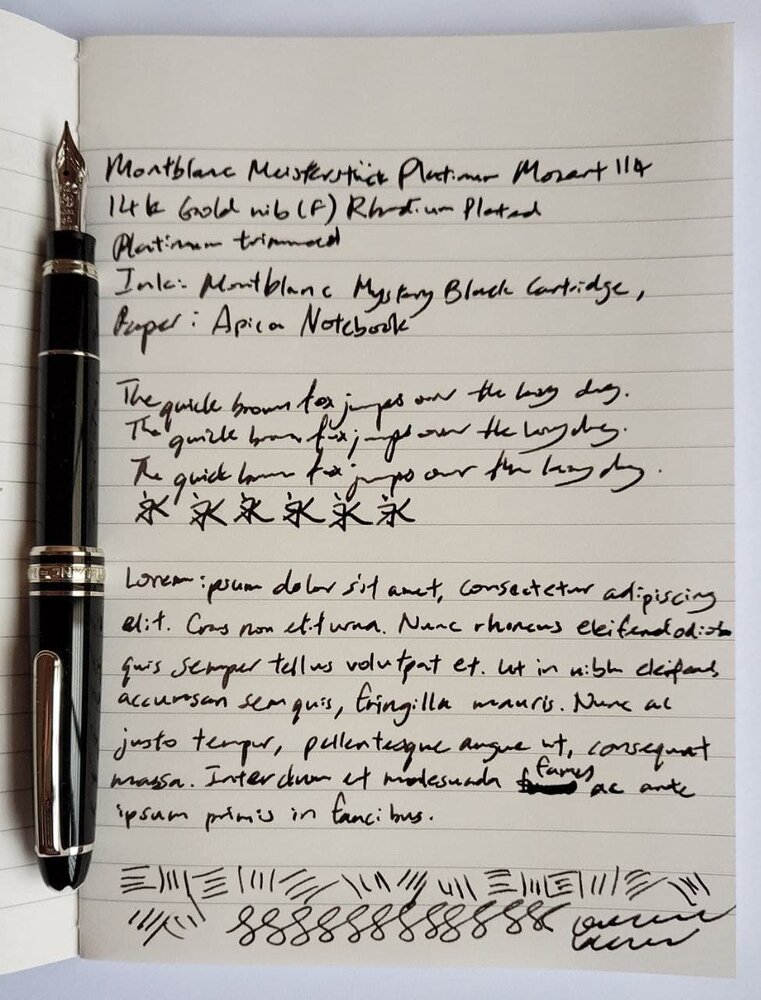 Montblanc Meisterstück Platinum Mozart 114
14k Gold nib (F) Rhodium Plated
Platinum trimmed
Ink: Montblanc Mystery Black Cartridge,
Paper: Apica Notebook
The quick brown fox jumps over the lazy dog.
The quick brown fox jumps over the lazy dog.
The quick brown fox jumps over the lazy dog.
永 永 永 永 永 永
Lorem ipsum dolor sit amet, consectetur adipiscing
elit. Cras non et urna. Nunc rhoncus eleifend odio
quis semper tellus volutpat et. Ut in nibh eleifend
accumsan sem quis, fringilla mauris. Nunc ac
justo tempor, pellentesque augue ut, consequat
massa. Interdum et malesuada fames ac ante
ipsum primis in faucibus.